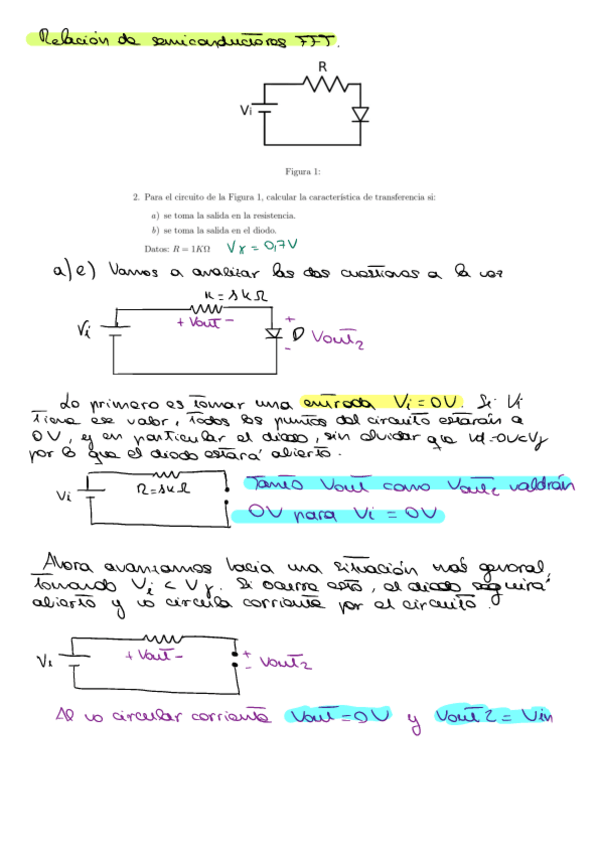 Relación de semiconductores FFT.
R
Vi
Figura 1:
2. Para el circuito de la Figura 1, calcular la característica de transferencia si:
a) se toma la salida en la resistencia.
b) se toma la salida en el diodo.
Datos: R = 1KΩ Vγ = 0,7V
a) e) Vamos a analizar las dos cuestiones a la vez
R = 1kΩ
Vi
+ Vout -
+
D Vout2
-
Lo primero es tomar una entrada Vi = 0V. Si Vi
tiene ese valor, todos los puntos del circuito estarán a
0V, y en particular el diodo, sin olvidar que Vd=0V<Vγ
por lo que el diodo estará abierto.
Vi
R=1kΩ
Tanto Vout como Vout2 valdrán
0V para Vi = 0V
Ahora avanzamos hacia una situación más general,
tomando Vi < Vγ. Si ocurre esto, el diodo seguirá
abierto y no circula corriente por el circuito.
Vi
+ Vout -
+
- Vout2
Al no circular corriente Vout=0V y Vout2 = Vin